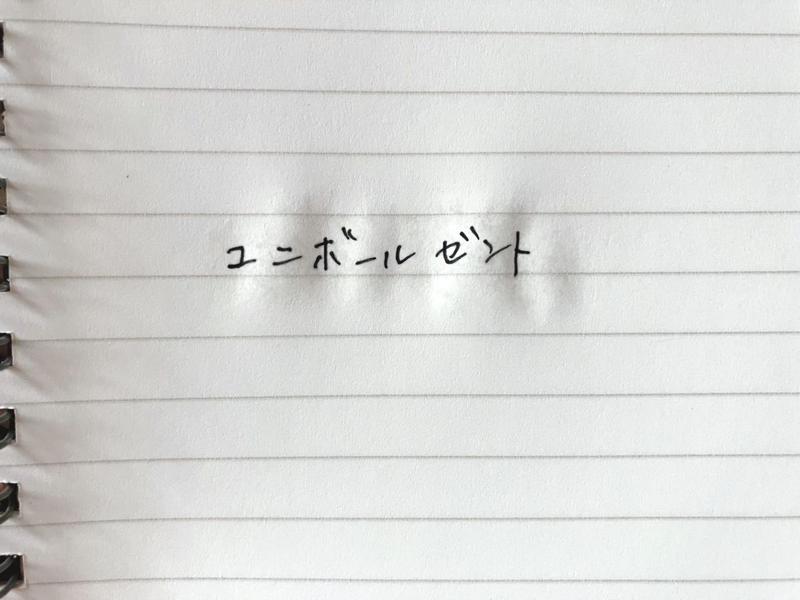 ユニボール ゼント